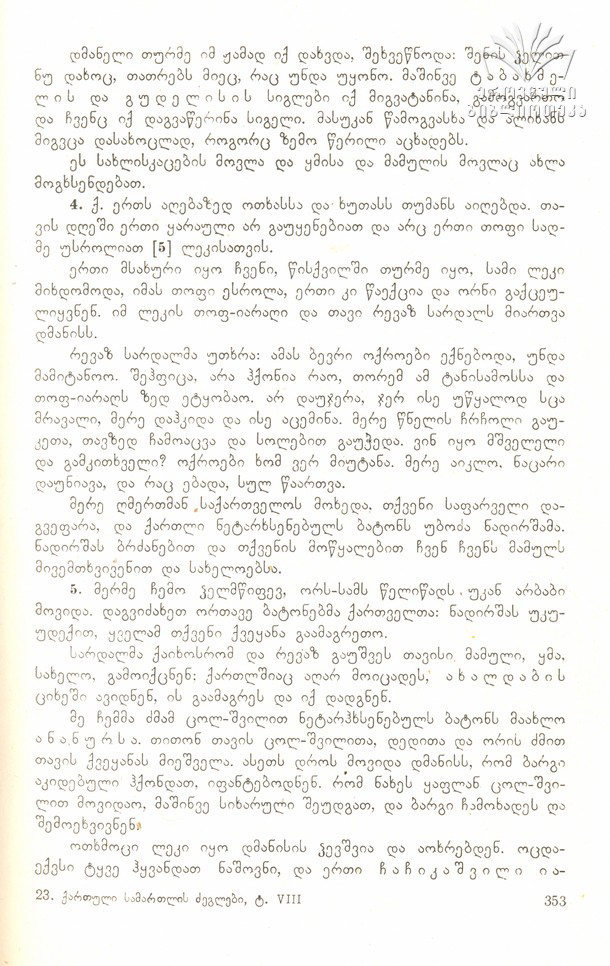 დმანელი თურმე იმ ჟამად იქ დახვდა, შეხვეწნოდა: შენის ჴელით
ნუ დახოც, თათრებს მიეც, რაც უნდა უყონო. მაშინვე ტაბახმე-
ლის და გუდელისის სიგლები იქ მიგვატანინა, გამოგვართო
და ჩვენც იქ დაგვაწერინა სიგელი. მასუკან წამოგვასხა და
მიგვცა დასახოცლად, როგორც ზემო წერილი აცხადებს.
ეს სახლისკაცების მოვლა და ყმისა და მამულის მოვლაც ახლა
მოგხსენდებათ.
4. ქ. ერთს აღებაზედ ოთხასსა და ხუთასს თუმანს აიღებდა. თა-
ვის დღეში ერთი ყარაული არ გაუყენებიათ და არც ერთი თოფი სად-
მე უსროლიათ [5] ლეკისათვის.
ერთი მსახური იყო ჩვენი, წისქვილში თურმე იყო, სამი ლეკი
მიხდომოდა, იმას თოფი ესროლა, ერთი კი წაექცია და ორნი გაქცეუ-
ლიყვნენ. იმ ლეკის თოფ-იარაღი და თავი რევაზ სარდალს მიართვა
დმანისს.
რევაზ სარდალმა უთხრა: ამას ბევრი ოქროები ექნებოდა, უნდა
მამიტანოო. შეჰფიცა, არა ჰქონია რაო, თორემ ამ ტანისამოსსა და
თოფ-იარაღს ზედ ეტყობაო. არ დაუჯერა, ჯერ ისე უწყალოდ სცა
მრავალი, მერე დაჰკიდა და ისე აცემინა. მერე წნელის ჩრჩოლი გაუ-
კეთა, თავზედ ჩამოაცვა და სოლებით გაუჭედა. ვინ იყო მშველელი
და გამკითხველი? ოქროები ხომ ვერ მიუტანა. მერე აიკლო, ნაცარი
დაუნიავა, და რაც ებადა, სულ წაართვა.
მერე ღმერთმან საქართველოს მოხედა. თქვენი საფარველი და-
გვეფარა, და ქართლი ნეტარხსენებულს ბატონს უბოძა ნადირშამა.
ნადირშას ბრძანებით და თქვენის მოწყალებით ჩვენ ჩვენს მამულს
მივემთხვივენით და სახელოებსა.
5. მერმე ჩემო ჴელმწიფევ, ორს-სამს წელიწადს უკან არბაბი
მოვიდა. დაგვიძახეთ ორთავე ბატონებმა ქართველთა: ნადირშას უკუ-
უდექით, ყველამ თქვენი ქვეყანა გაამაგრეთო.
სარდალმა ქაიხოსრომ და რევაზ გაუშვეს თავისი მამული, ყმა,
სახელო, გამოიქცნენ; ქართლშიაც აღარ მოიცადეს, ახალდაბის
ციხეში ავიდნენ, ის გაამაგრეს და იქ დადგნენ.
მე ჩემმა ძმამ ცოლ-შვილით ნეტარჰხსენებულს ბატონს მაახლო
ანანურსა. თითონ თავის ცოლ-შვილითა, დედითა და ორის ძმით
თავის ქვეყანას მიეშველა. ასეთს დროს მოვიდა დმანისს, რომ ბარგი
აკიდებული ჰქონდათ, იფანტებოდნენ. რომ ნახეს ყაფლან ცოლ-შვი-
ლით მოვიდაო, მაშინვე სიხარული შეუდგათ, და ბარგი ჩამოხადეს და
შემოეხვივნენ.
ოთხმოცი ლეკი იყო დმანისის ჴევშვია და აოხრებდენ. ოცდა-
ექვსი ტყვე ჰყვანდათ ნაშოვნი, და ერთი ჩაჩიკაშვილი ია-
23. ქართული სამართლის ძეგლები, ტ. VIII
353